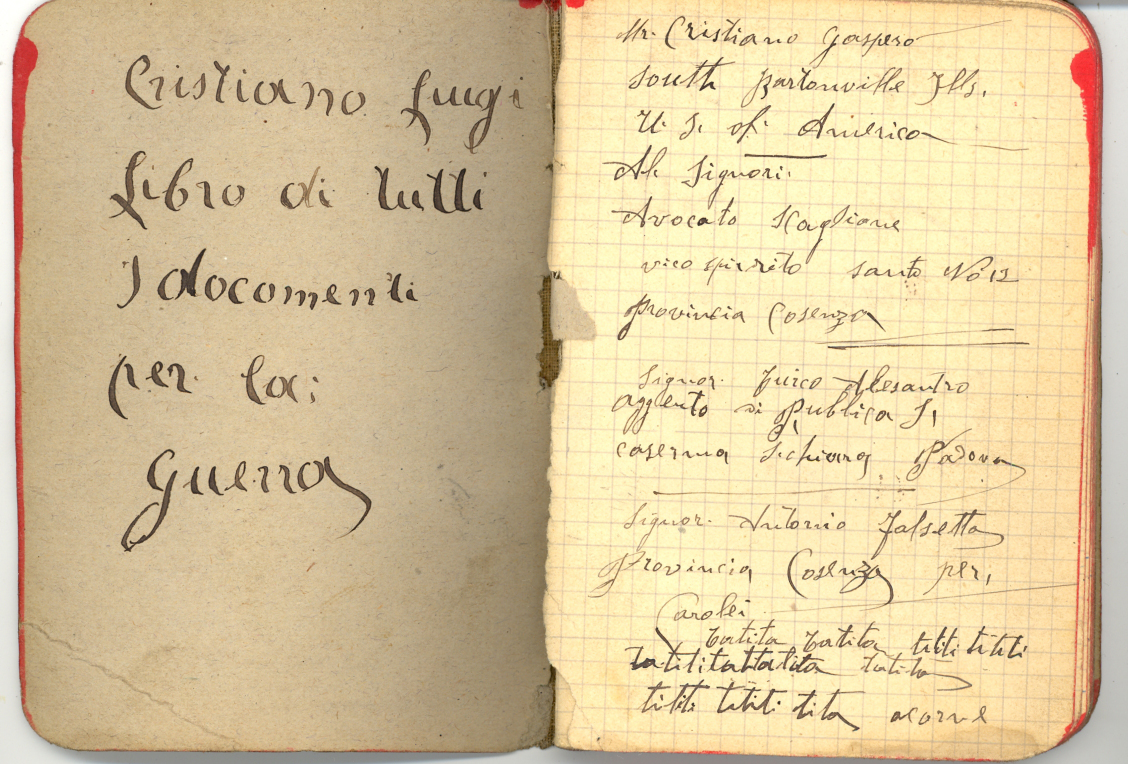 Cristiano Luigi
Libro di tutti
I docomenti
per la;
Guerra
Mr. Cristiano Gaspero
South Bartonville Ills.
U. S. of America
Al Signori.
Avocato Scaglione
vico spirito santo No 12
Provincia Cosenza
Signor. Turco Alesantro
aggento di Publica S,
caserma Schiava Padova
Signor. Antonio Falsetta
Provincia Cosenza per,
Carolei
tatita tatita tititi tititi
tatita
tititi tititi tita